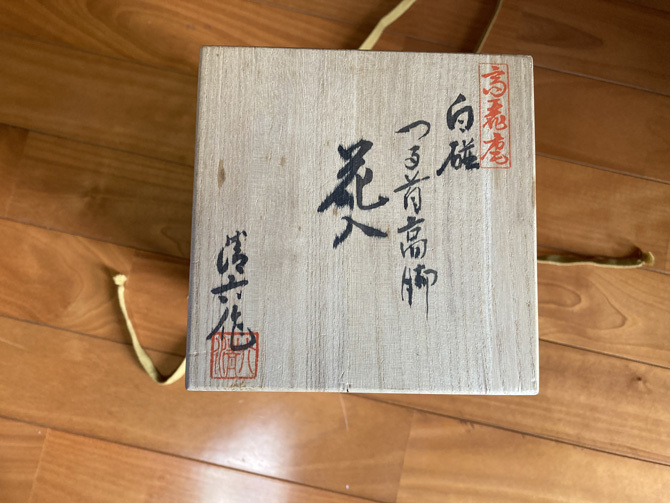 高麗庵
白磁
つる首高脚
花入
清六作